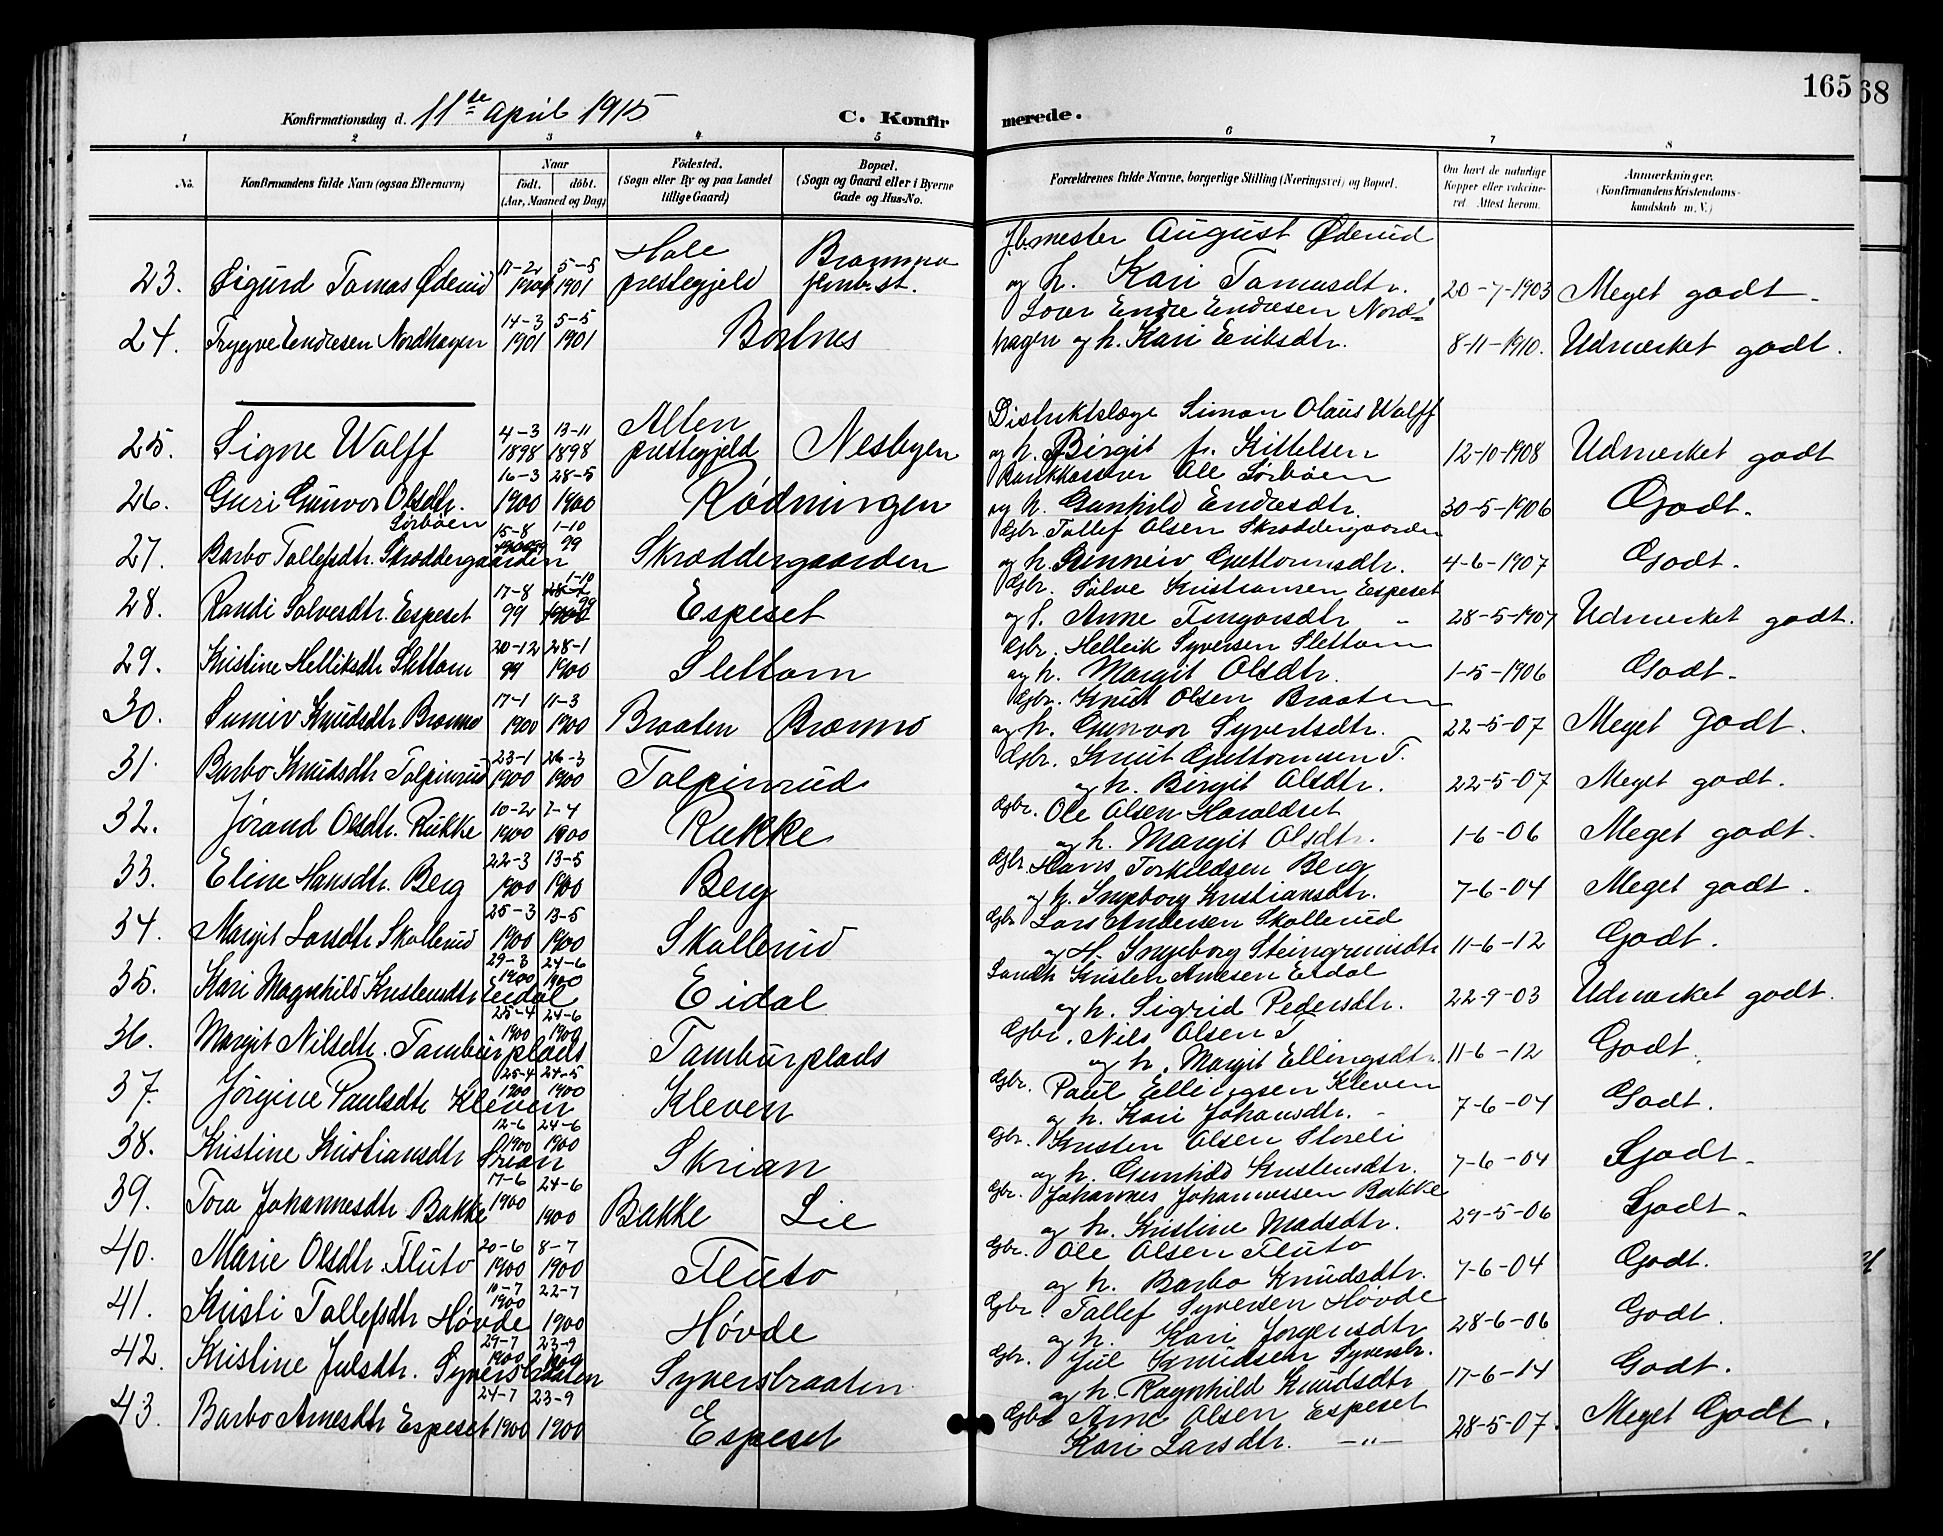 165
68
Konfirmationsdag d. 11te april 1915
C. Konfirmerede.
1 2 3 4 5 6 7 8
No. Konfirmandens fulde Navn (ogsaa Efternavn) Naar født. døbt. (Aar, Maaned og Dag) Fødested. (Sogn eller By og paa Landet tillige Gaard) Bopæl. (Sogn og Gaard eller i Byerne Gade og Hus-No. Forældrenes fulde Navne, borgerlige Stilling (Næringsvei) og Bopæl. Om havt de naturlige Kopper eller vaccineret. Attest herom. Anmerkninger. (Konfirmandens Kristendomskundskab m. V.)
23. Sigurd Tomas Øderud 17-2 1901 5-5 1901 Hole prestegjeld Bromma jernb.st. Jb.mester August Øderud og h. Kari Tomasdtr. 20-7-1903 Meget godt.
24. Trygve Endresen Nordhagen 14-3 1901 5-5 1901 Bortnes Endre Endresen Nordhagen og h. Kari Eriksdtr. 8-11-1910. Udmerket godt.
25. Signe Wolff 4-3 1898 13-11 1898 Alten prestegjeld Nesbyen Distriktslæge Simon Olaus Wolff og h. Birgit f. Kittelsen 12-10-1908 Udmerket godt
26. Guri Gunvor Olsdtr. Sørbøen 16-3 1900 28-5 1900 Rødningen Bankkasserer Ole Sørbøen og h. Gunhild Endresdtr. 30-5-1906 Godt.
27. Barbo Tollefsdtr. Skræddergaarden 15-8 99 1-10 99 Skræddergaarden Gbr. Tollef Olsen Skræddergaarden og h. Guttormsdtr. 4-6-1907 Godt.
28. Randi Solvesdtr. Espeset 17-8 99 1-10 99 Espeset Gbr. Sølve Kristiansen Espeset og h. Anne Fingarsdtr - 28-5-1907 Udmerket godt.
29. Kristine Helliksdtr Slettom 20-12 99 28-1 1900 Slettom Gbr. Hellik Syversen Slettom og h. Margit Olsdtr. 1-5-1906 Godt.
30. Sunniv Knudsdtr Bromma 17-1 1900 11-3 1900 Braaten Bromma Gbr. Knut Olsen Braaten og h. Gunvor Syvertsdtr. 22-5-07 Meget Godt.
31. Barbo Knudsdtr Tolpinrud 23-1 1900 26-3 1900 Tolpinrud Gbr. Knut Guttormsen T. og h. Birgit Olsdtr. 22-5-07 Meget godt.
32. Jørand Olsdtr. Rukke 10-2 1900 7-4 1900 Rukke Gbr. Ole Olsen Haraldset og h. Margit Olsdtr. 1-6-06 Meget godt.
33. Eline Hansdtr. Berg 22-3 1900 13-5 1900 Berg Gbr. Hans Torkildsen Berg og h. Ingeborg Kristiansdtr. 7-6-04 Meget godt.
34. Margit Larsdtr Skollerud 25-3 1900 13-5 1900 Skollerud Gbr Lars Andersen Skollerud og H. Ingeborg Steingrimsdtr 11-6-12 Godt.
35. Kari Magnhild Kristensdtr Eidal 29-3 1900 24-6 1900 Eidal Kristen Arnesen Eidal og h. Sigrid Pedersdtr. 22-9-03 Udmerket godt.
36. Margit Nilsdtr. Tamburplads 25-4 1900 24-6 1900 Tamburplads Gbr. Nils Olsen T og h. Margit Ellingsdtr. 11-6-12 Godt.
37. Jørgine Paulsdtr Kleven 25-4 1900 24-5 1900 Kleven Gbr. Paul Ellingsen Kleven og h. Kari Johansdtr. - 7-6-04 Godt.
38. Kristine Kristiansdtr Skrian 12-6 1900 24-6 1900 Skrian Gbr. Kristen Olsen Storeli og h. Gunhild Kristensdtr. 7-6-04 Godt.
39. Tora Johannesdtr Bakke 17-6 1900 24-6 1900 Bakke Lie Gbr. Johannes Johannessen Bakke og h. Kristine Madsdtr. 29-5-06 Godt.
40. Marie Olsdtr. Fluto 20-6 1900 8-7 1900 Fluto Gbr. Ole Olsen Fluto og h. Barbo Knudsdtr. 7-6-04 Godt.
41. Kristi Tollefsdtr Høvde 10-7 1900 22-7 1900 Høvde Gbr. Tollef Syversen Høvde og h. Kari Jørgensdtr 28-6-06 Godt.
42. Kristine Julsdtr. Syversbraaten 29-7 1900 23-9 1900 Syversbraaten Gbr. Jul Knudsen Syversbr. og h. Ragnhild Knudsdtr 17-6-14 Godt.
43. Barbo Arnesdtr Espeset 24-7 1900 23-9 1900 Espeset Gbr Arne Olsen Espeset Kari Larsdtr. -"- 28-5-07. Meget Godt.